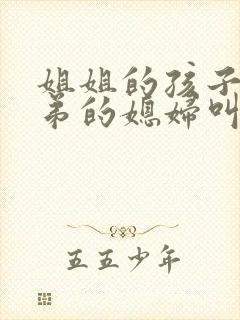 姐姐的孩子
弟的媳婦叫
五五少年